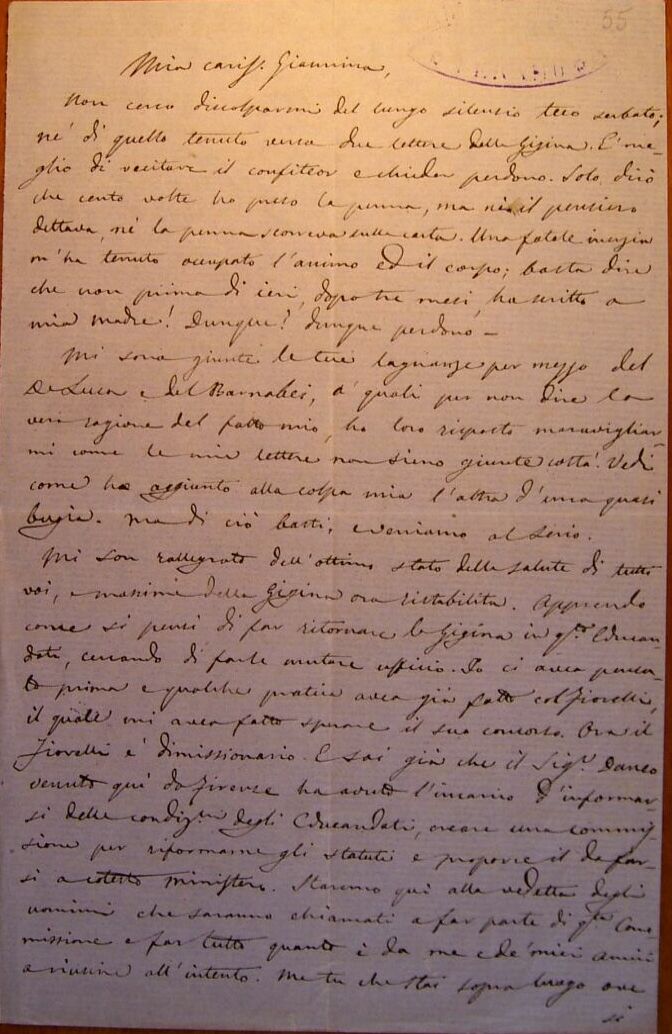 55
Mia cariss. Giannina,
Non cerco discolparmi del lungo silenzio teco serbato;
né di quello tenuto verso due lettere della Gigina. È me-
glio di recitare il confiteor e chieder perdono. Solo dirò
che cento volte ho preso la penna, ma né il pensiero
dettava, né la penna scorreva sulla carta. Una fatale inerzia
m'ha tenuto occupato l'animo ed il corpo; basta dire
che non prima di ieri, dopo tre mesi, ho scritto a
mia madre! Dunque? Dunque perdono –
Mi sono giunte le tue lagnanze per mezzo del
De Luca e del Barnabei, a' quali per non dire la
vera ragione del fatto mio, ho loro risposto maravigliar-
mi come le mie lettere non sieno giunte costà. Vedi
come ho aggiunto alla colpa mia l'altra d'una quasi
bugia. Ma di ciò basti, e veniamo al serio.
Mi son rallegrato dell'ottimo stato della salute di tutti
voi, e massime della Gigina ora ristabilita. Apprendo
come si pensi di far ritornare la Gigina in qsto Educan-
dato, cercando di farle mutare ufficio. Io ci avea pensa-
to prima e qualche pratica avea già fatto col Fiorelli,
il quale mi avea fatto sperare il suo concorso. Ora il
Fiorelli è dimissionario. E sai già che il Sigr. Daneo
venuto quì da Firenze ha avuto l'incarico d'informar-
si delle condizni degli Educandati, creare una commis-
sione per riformarne gli statuti e proporre il da far-
si a cotesto Ministero. Staremo qui alla vedetta degli
uomini che saranno chiamati a far parte di qsta Com-
missione e far tutto quanto è da me e de' miei amici
a riuscire all'intento. Ma tu che stai sopra luogo ove
si